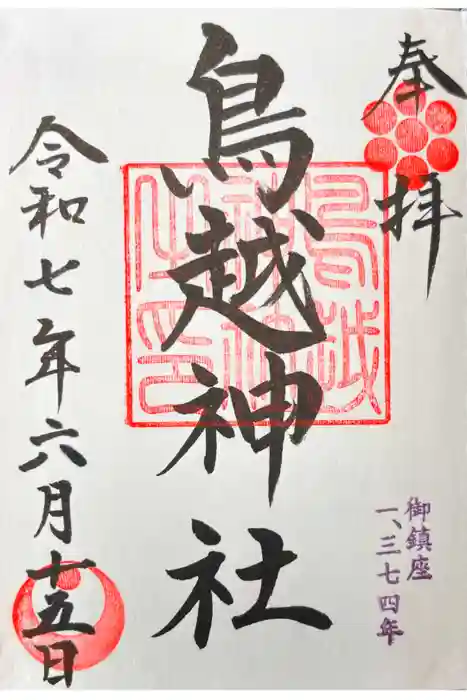 奉拝
鳥越神社
鳥越神社之印
令和七年六月十五日
御鎮座
一、三七四年